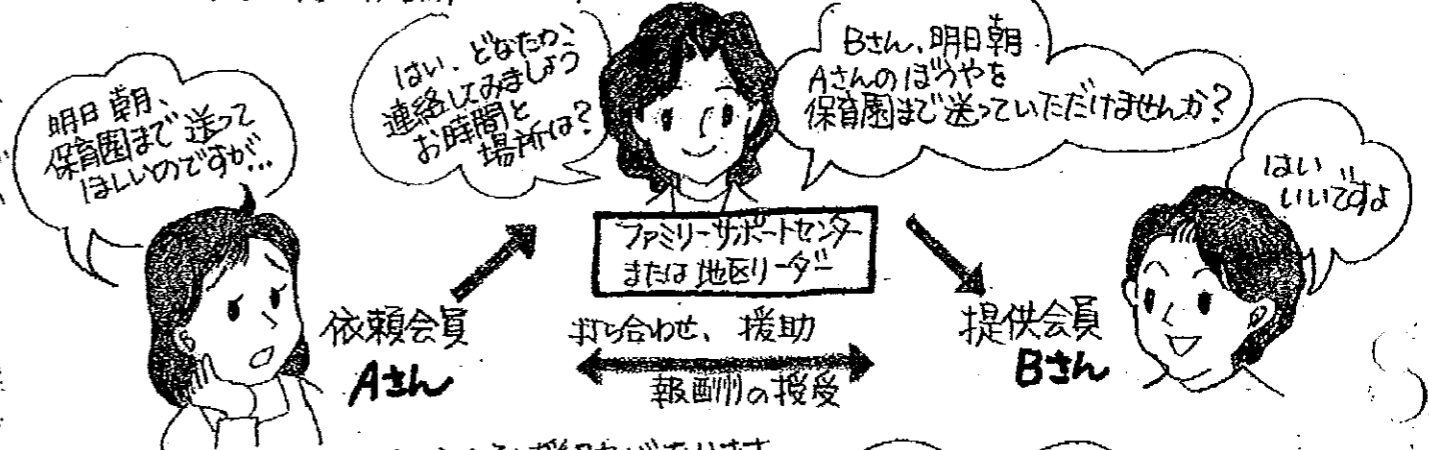 明日朝、
保育園まで送って
ほしいのですが…
はい、どなたか、
連絡してみましょう
お時間と
場所は?
Bさん、明日朝
Aさんのぼうやを
保育園まで送っていただけませんか?
はい
いいですよ
ファミリーサポートセンター
または地区リーダー
依頼会員
Aさん
打ち合わせ、援助
報酬の授受
提供会員
Bさん